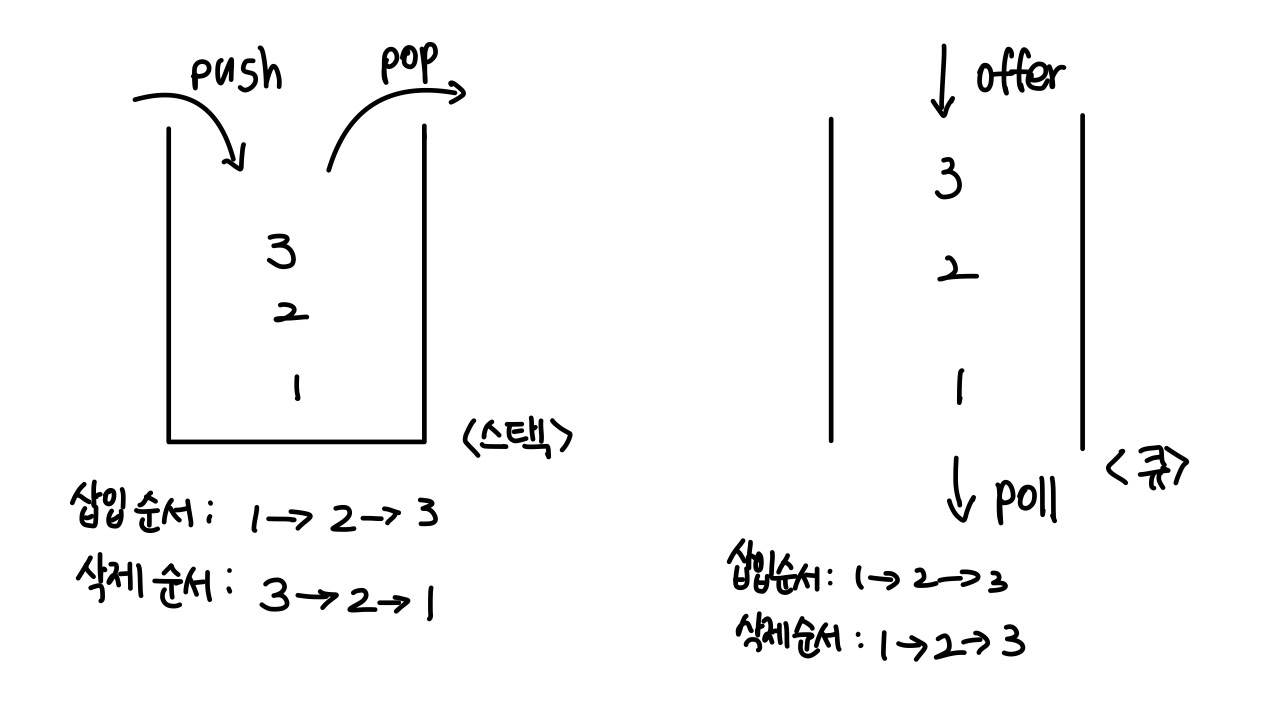 push
pop
3
2
1
<스택>
삽입 순서 : 1 → 2 → 3
삭제 순서 : 3 → 2 → 1
offer
3
2
1
poll
<큐>
삽입순서 : 1 → 2 → 3
삭제순서 : 1 → 2 → 3